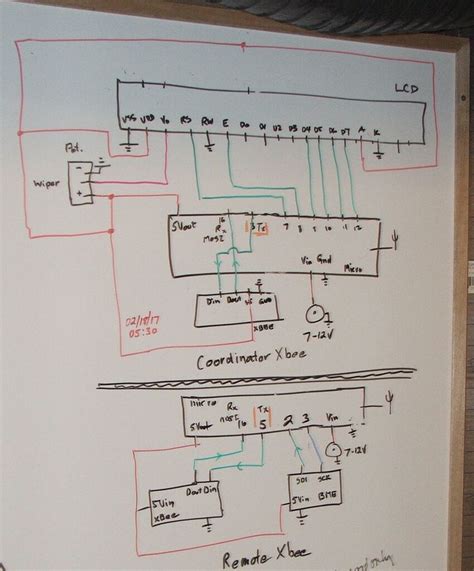 LCD
VSS VDD Vo RS RW E D0 D1 D2 D3 D4 D5 D6 D7 A K
Pot.
-
Wiper
+
5Vout 16 Rx MOSI 3 Tx 7 8 9 10 11 12
Vin Gnd Micro
Din Dout V5 GND
XBee
7-12V
02/18/17
05:30
Coordinator Xbee
micro
5Vout Rx MOSI 16 Tx 5 2 3 Vin
7-12V
Dout Din
5Vin
XBee
SDI SCK
5Vin BME
Remote Xbee